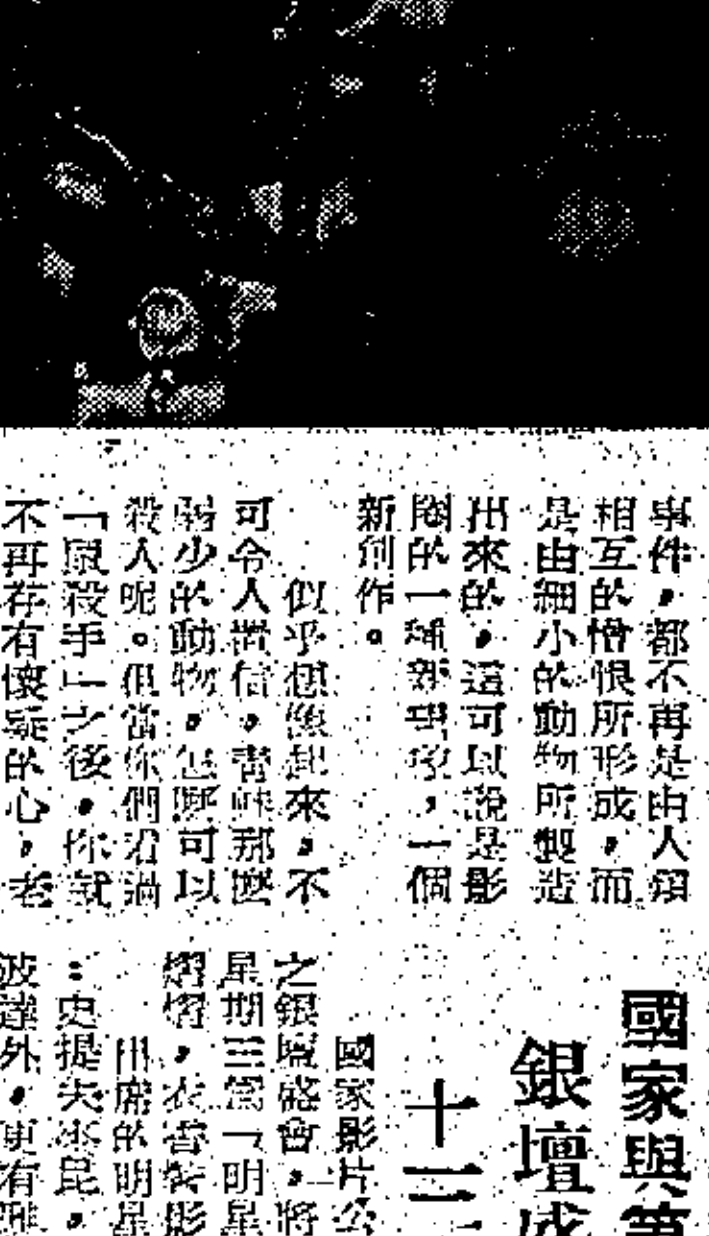 事件，都不再是由人類
相互的憎恨所形成，而
是由細小的動物所製造
出來的，這可以說是影
圈的一種新，一個
新創作。
似乎想像起來，不
可令人置信，那麼
弱少的動物，怎麼可以
殺人呢。但當你們看過
「鼠殺手」之後，你就
不再存有懷疑的心，老
國家與第
銀壇盛
十三
國家影片公
之銀壇盛會，將
星期三為「明星
熠熠，衣香鬢影
出席的明星
：史提夫，
波達外，更有雅